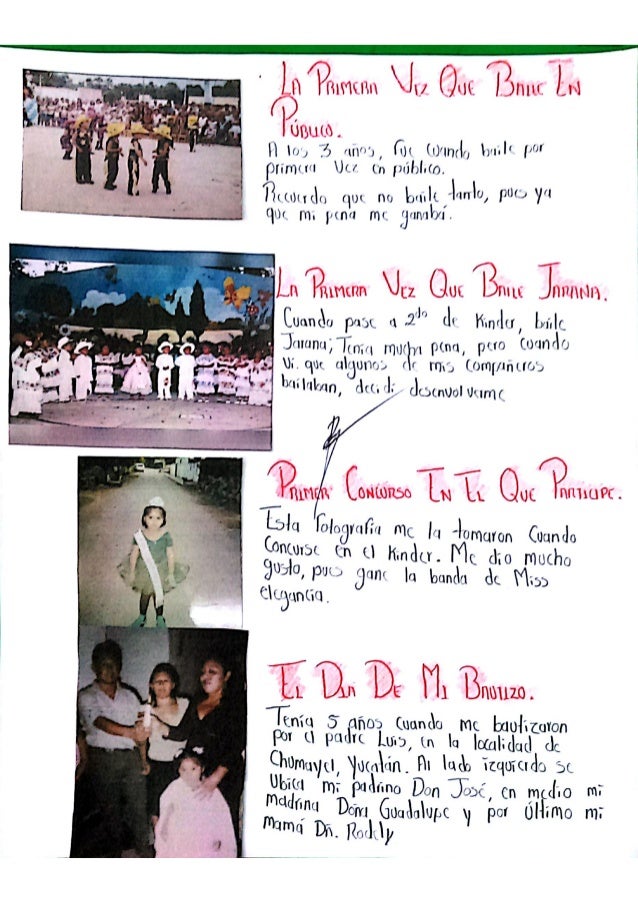 La Primera Vez Que Baile En
Público.
A los 3 años, fue cuando baile por
primera vez en público.
Recuerdo que no baile tanto, pues ya
que mi pena me ganaba.
La Primera Vez Que Baile Jarana.
Cuando pase a 2do de Kinder, baile
Jarana; Tenía mucha pena, pero cuando
vi que algunos de mis compañeros
bailaban, decidi desenvolverme
Primer Concurso En El Que Participe.
Esta fotografía me la tomaron cuando
concurse en el kinder. Me dio mucho
gusto, pues gane la banda de Miss
elegancia.
El Dia De Mi Bautizo.
Tenía 5 años cuando me bautizaron
por el padre Luis, en la localidad de
Chumayel, Yucatán. Al lado izquierdo se
ubica mi padrino Don José, en medio mi
madrina Doña Guadalupe y por último mi
mamá Dñ. Rodely